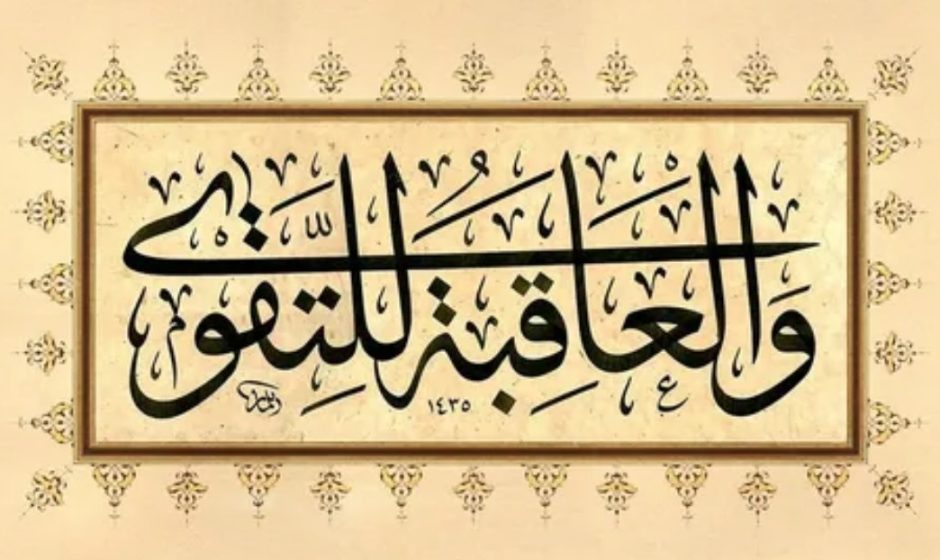 وَالْعَاقِبَةُ لِلتَّقْوَىٰ
١٤٣٥